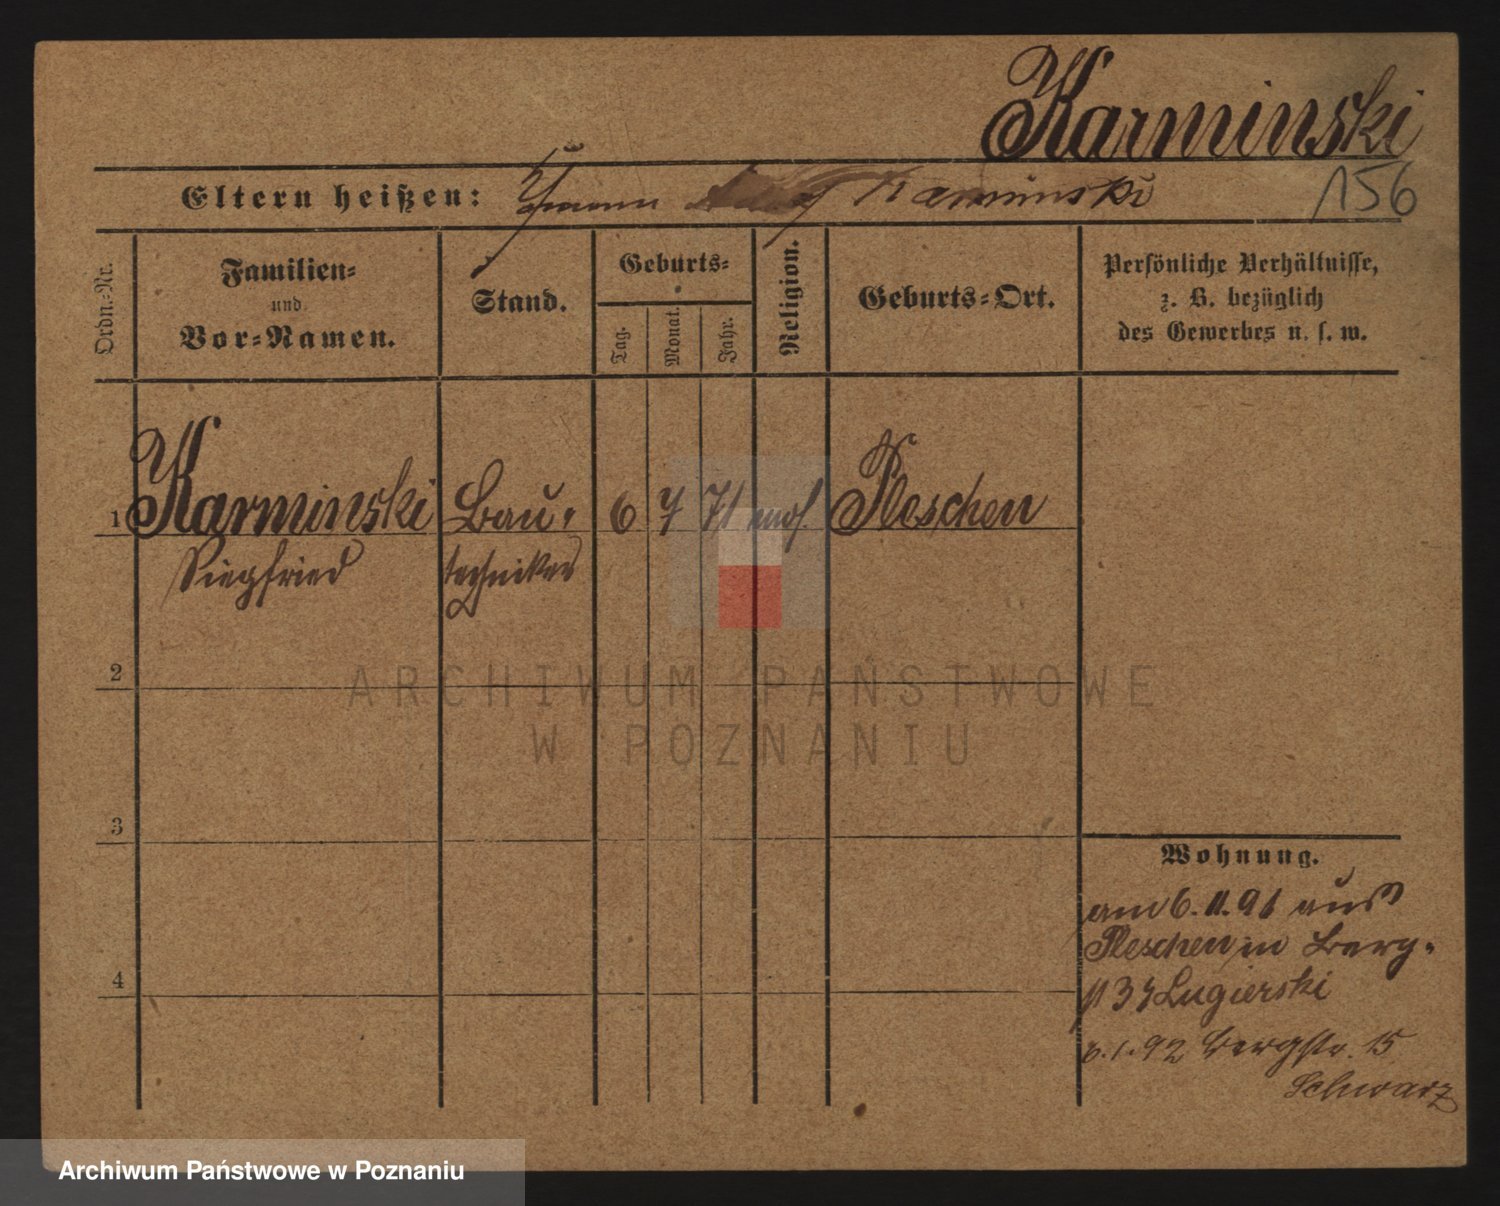 Karminski
Eltern heißen: Kaminski
156
Ordn.-Nr.
Familien-
und
Vor-Namen.
Stand.
Geburts-
Tag.
Monat.
Jahr.
Religion.
Geburts-Ort.
Persönliche Verhältnisse,
z. B. bezüglich
des Gewerbes u. s. w.
1 Karminski Bau- 6 7 71 mos. Pleschen
Siegfried techniker
2
ARCHIWUM PAŃSTWOWE
W POZNANIU
3
Wohnung.
am 6.11.91 aus
Pleschen in Berg-
Lugierski
4
6.1.92 Bergstr. 15
Schwarz
Archiwum Państwowe w Poznaniu